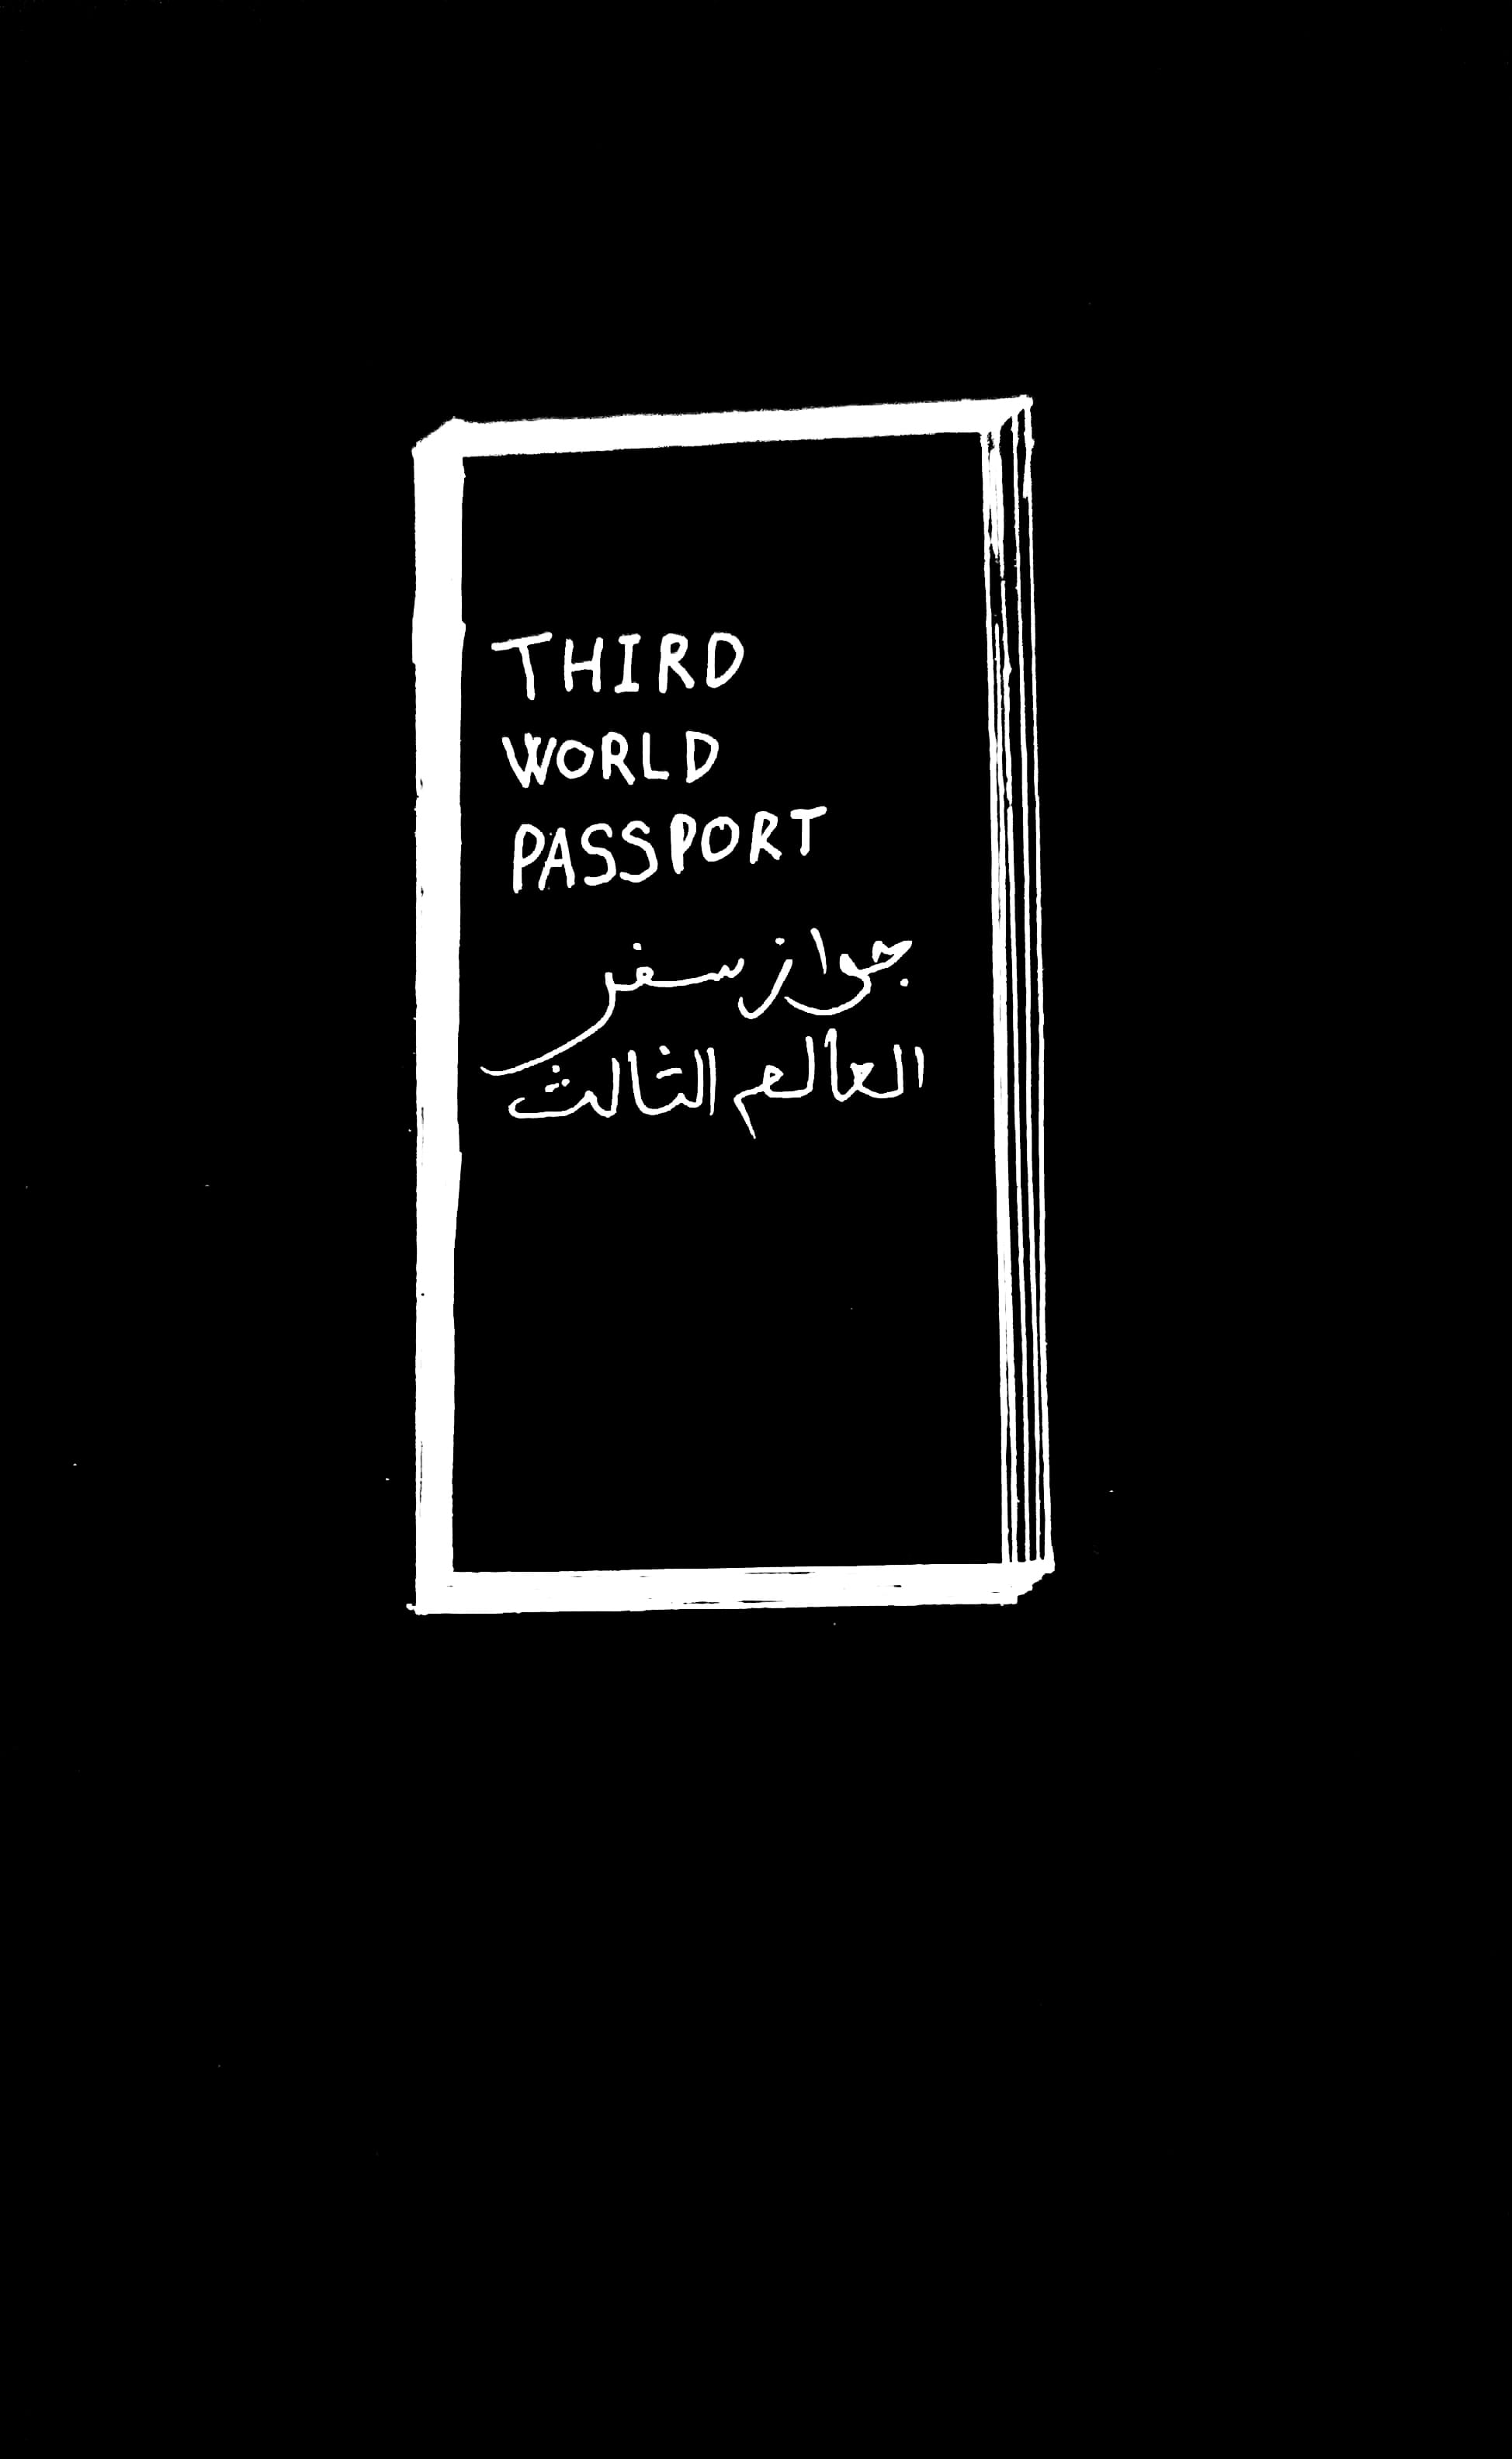 THIRD
WORLD
PASSPORT
جواز سفر
العالم الثالث